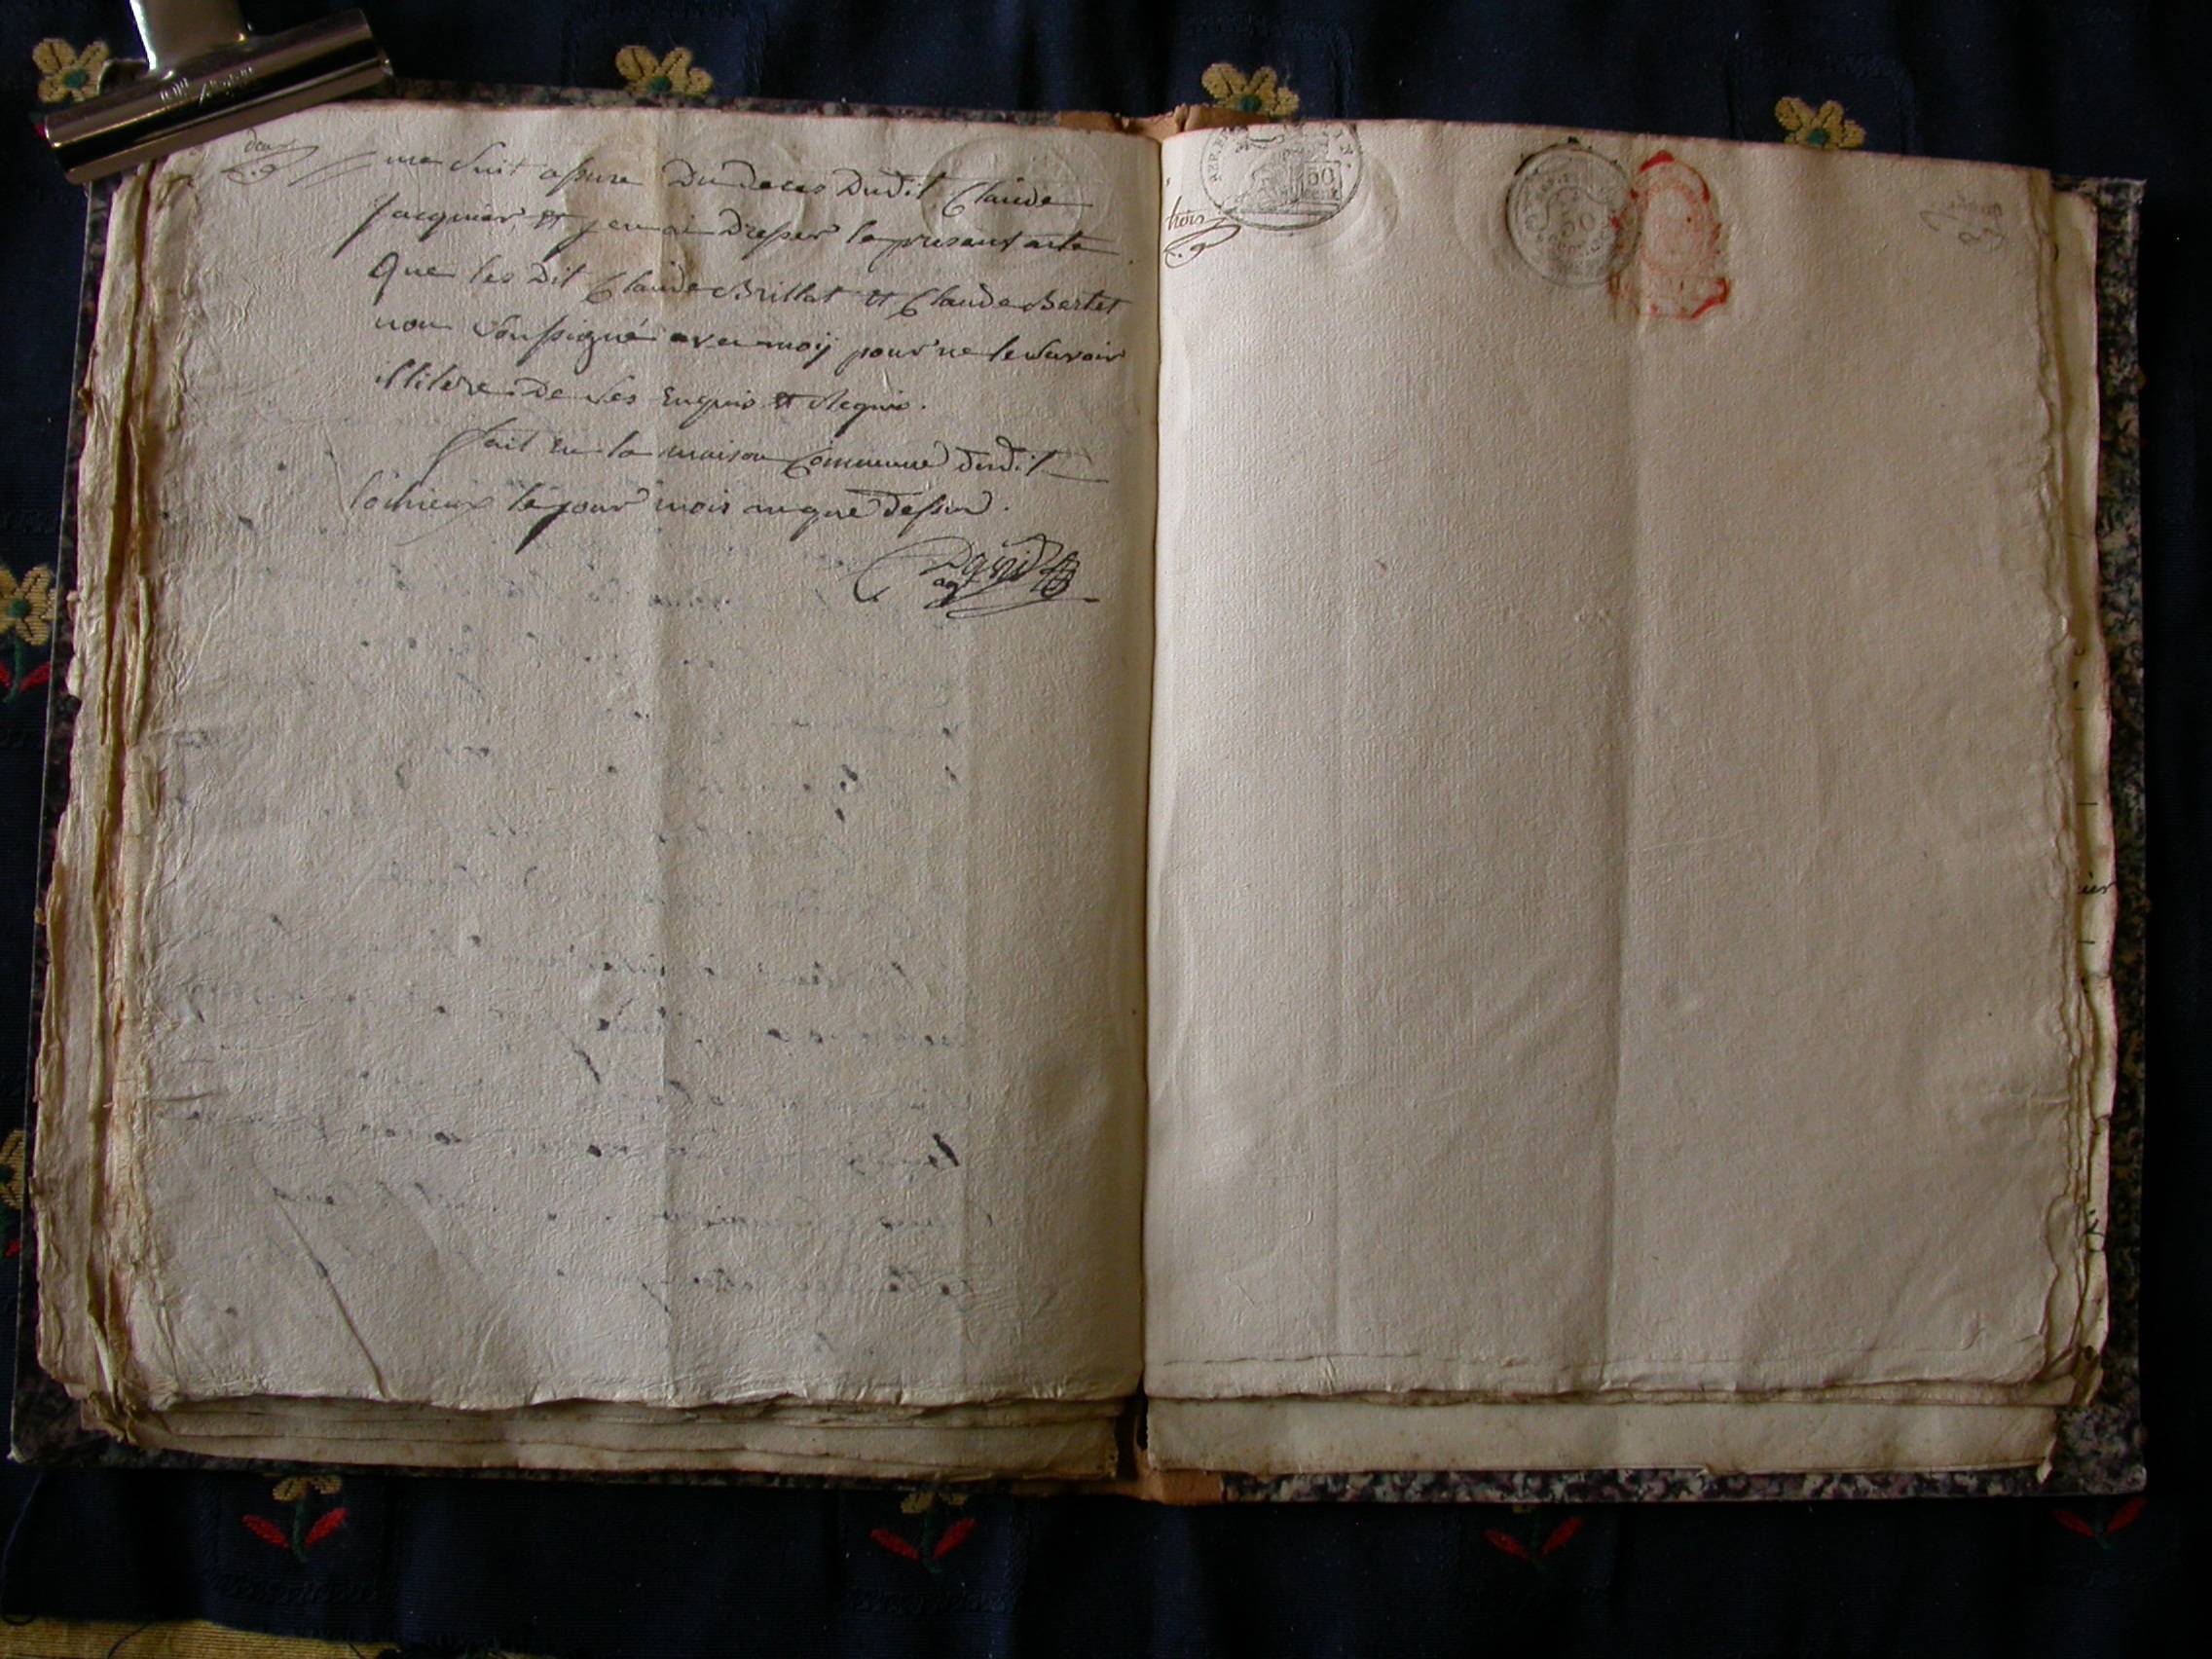 deux
me suit assure du deces dudit Claude
jacquier, et jen ai dresser le presant acte
Que les dit Claude Brillat et Claude Bertet
non soussigné avec moij pour ne le savoir
illitere de ses enquis et requis.
fait en la maison Commune dudit
lochieux le jour mois an que dessus.
David
ag
trois
50
50